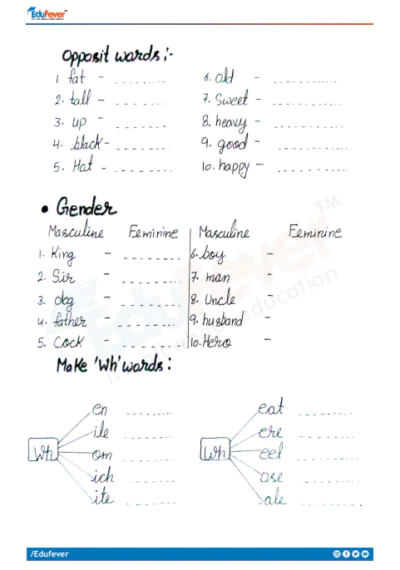 EduFever
Opposit words:-
1 fat -
2. tall -
3. up -
4. black -
5. Hot -
6. old -
7. Sweet -
8. heavy -
9. good -
10. happy -
• Gender
Masculine Feminine
1. King -
2. Sir -
3. dog -
4. father -
5. Cock -
Masculine Feminine
6. boy -
7. man -
8. Uncle -
9. husband -
10. Hero -
Make 'Wh' words:
Wh
en
ile
om
ich
ite
Wh
eat
ere
eel
ose
ale
EduFever
TM
/Edufever